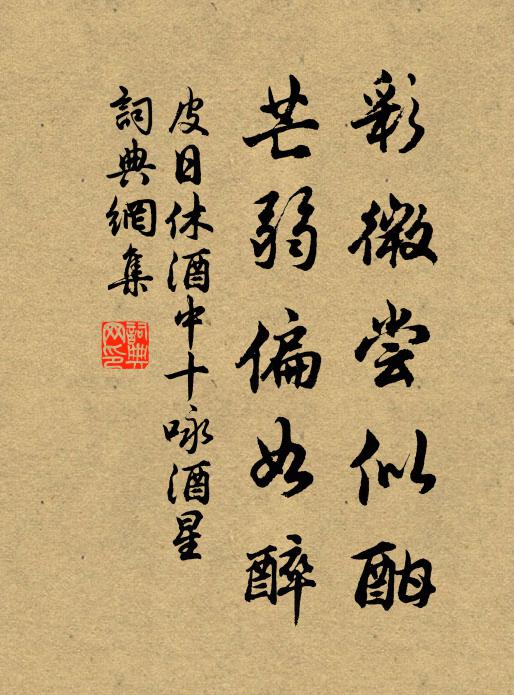 彩微尝似酣
芒弱偏如醉
皮日休酒中十咏酒星
詞典網集
詞典网印